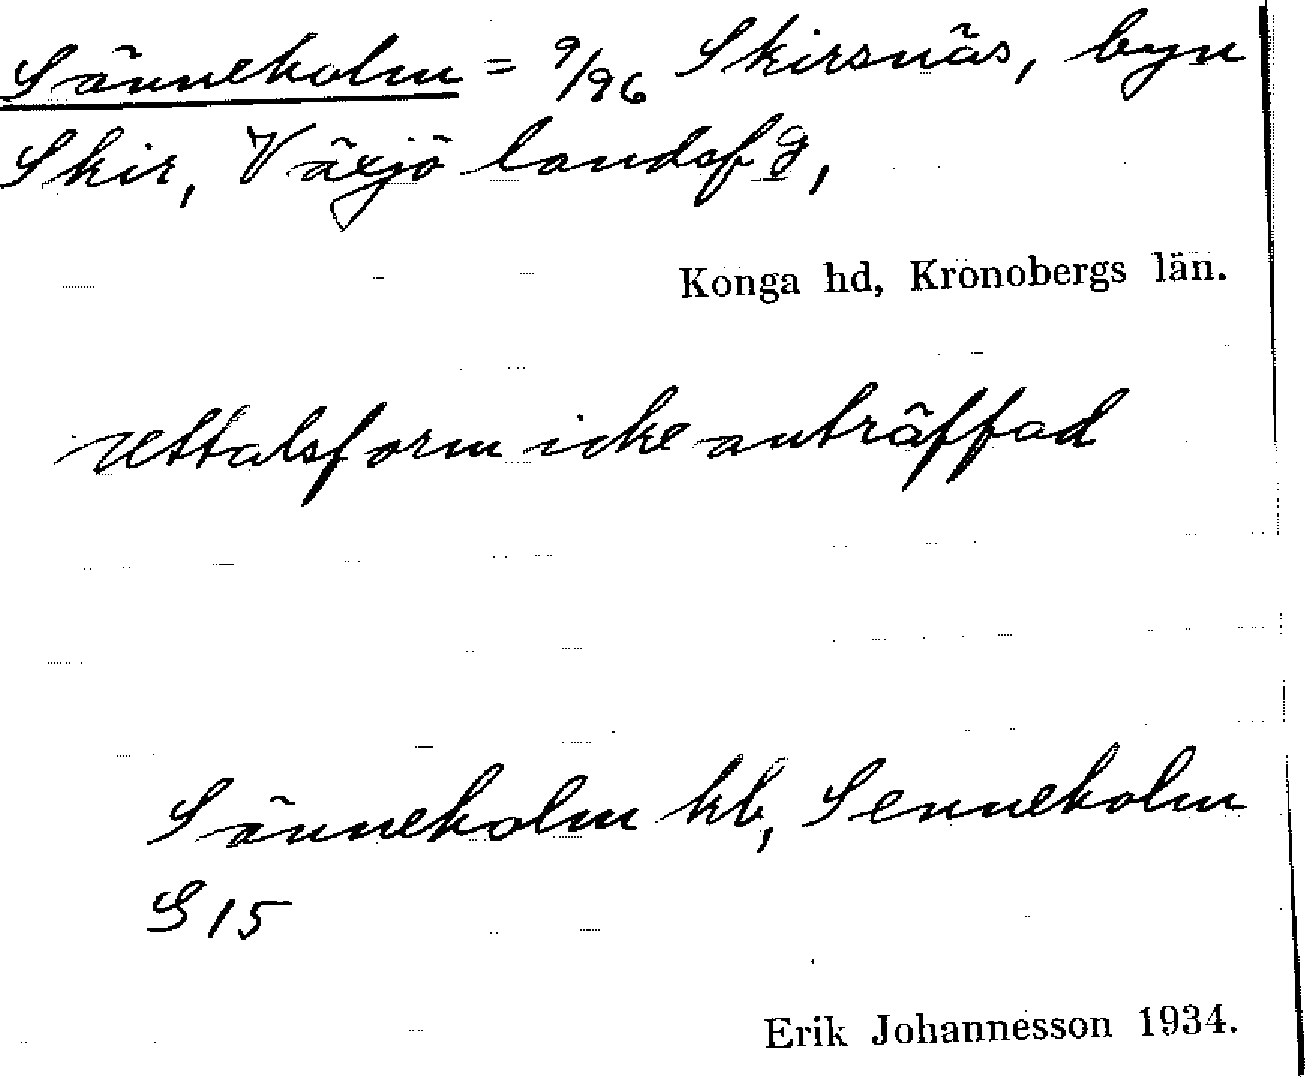 Sänneholm = 9/96 Skirsnäs, byn
Skir, Växjö landsf g,
Konga hd, Kronobergs län.
Uttalsform icke anträffad
Sänneholm kb, Senneholm
S 15
Erik Johannesson 1934.